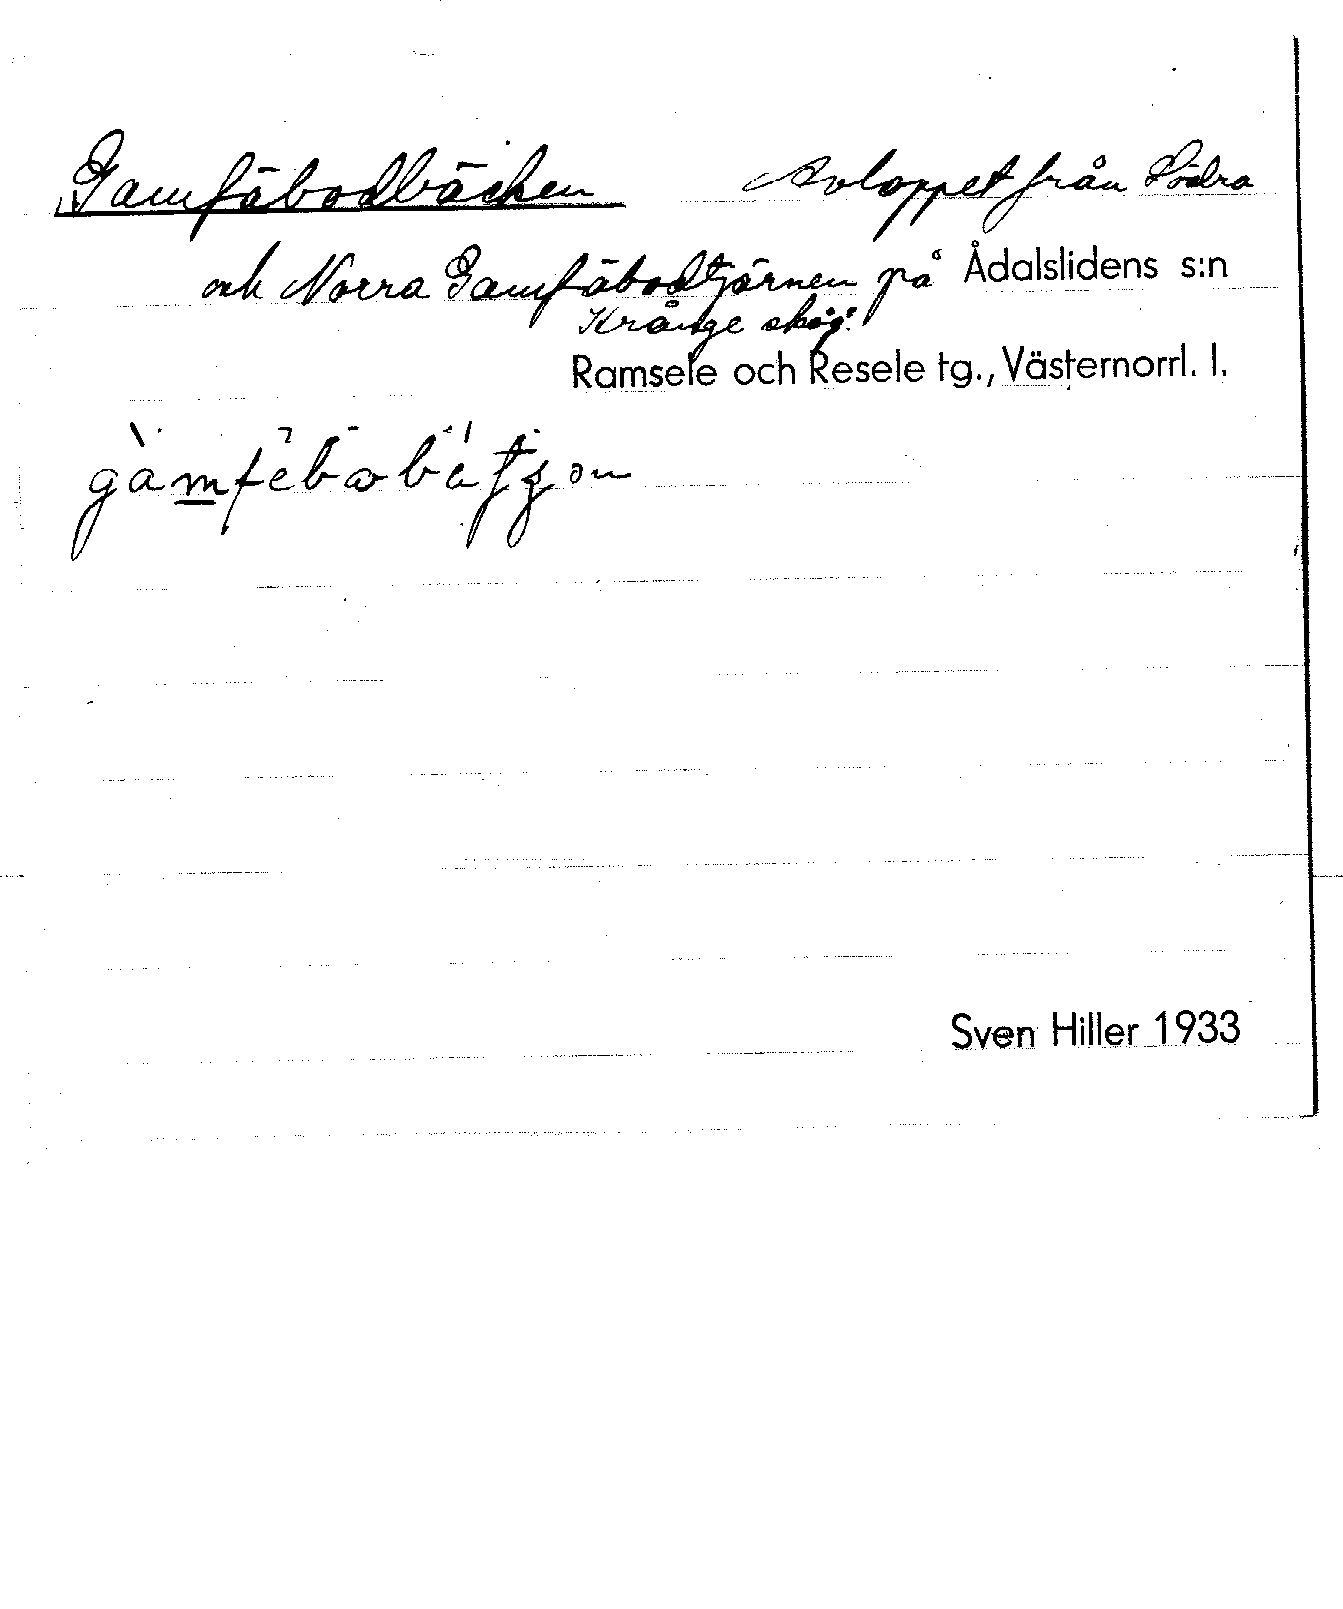 Gamfäbodbäcken Avloppet från Södra
och Norra Gamfäbodtjärnen på Ådalslidens s:n
Krånge skog.
Ramsele och Resele tg., Västernorrl. l.
Sven Hiller 1933